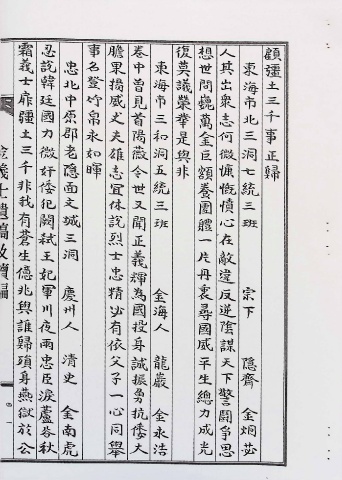 顧疆土三千事正歸
東海市北三洞七統三班 宗下 隱齊 金炯苾
人其出衆志何微慷慨憤心在敵違反逆陰謀天下警鬪爭思
想世問巍萬金巨額養團體一片丹衷尋國威平生總力成光
復莫議榮華是與非
東海市三和洞五統三班 金海人 龍巖 金永浩
卷中曾見首陽薇今世又聞正義輝為國投身誠振勇抗倭大
膽果揚威丈夫雄志宜休說烈士忠精必有依父子一心同舉
事名登竹帛永如暉
忠北中原郡老隱面文城三洞 慶州人 清史 金南虎
忍說韓廷國力微奸倭犯闕弑王妃軍川夜雨忠臣淚蘆谷秋
霜義士扉疆土三千非我有蒼生億兆與誰歸殞身燕獄於公
義士遺稿攷續編
四一